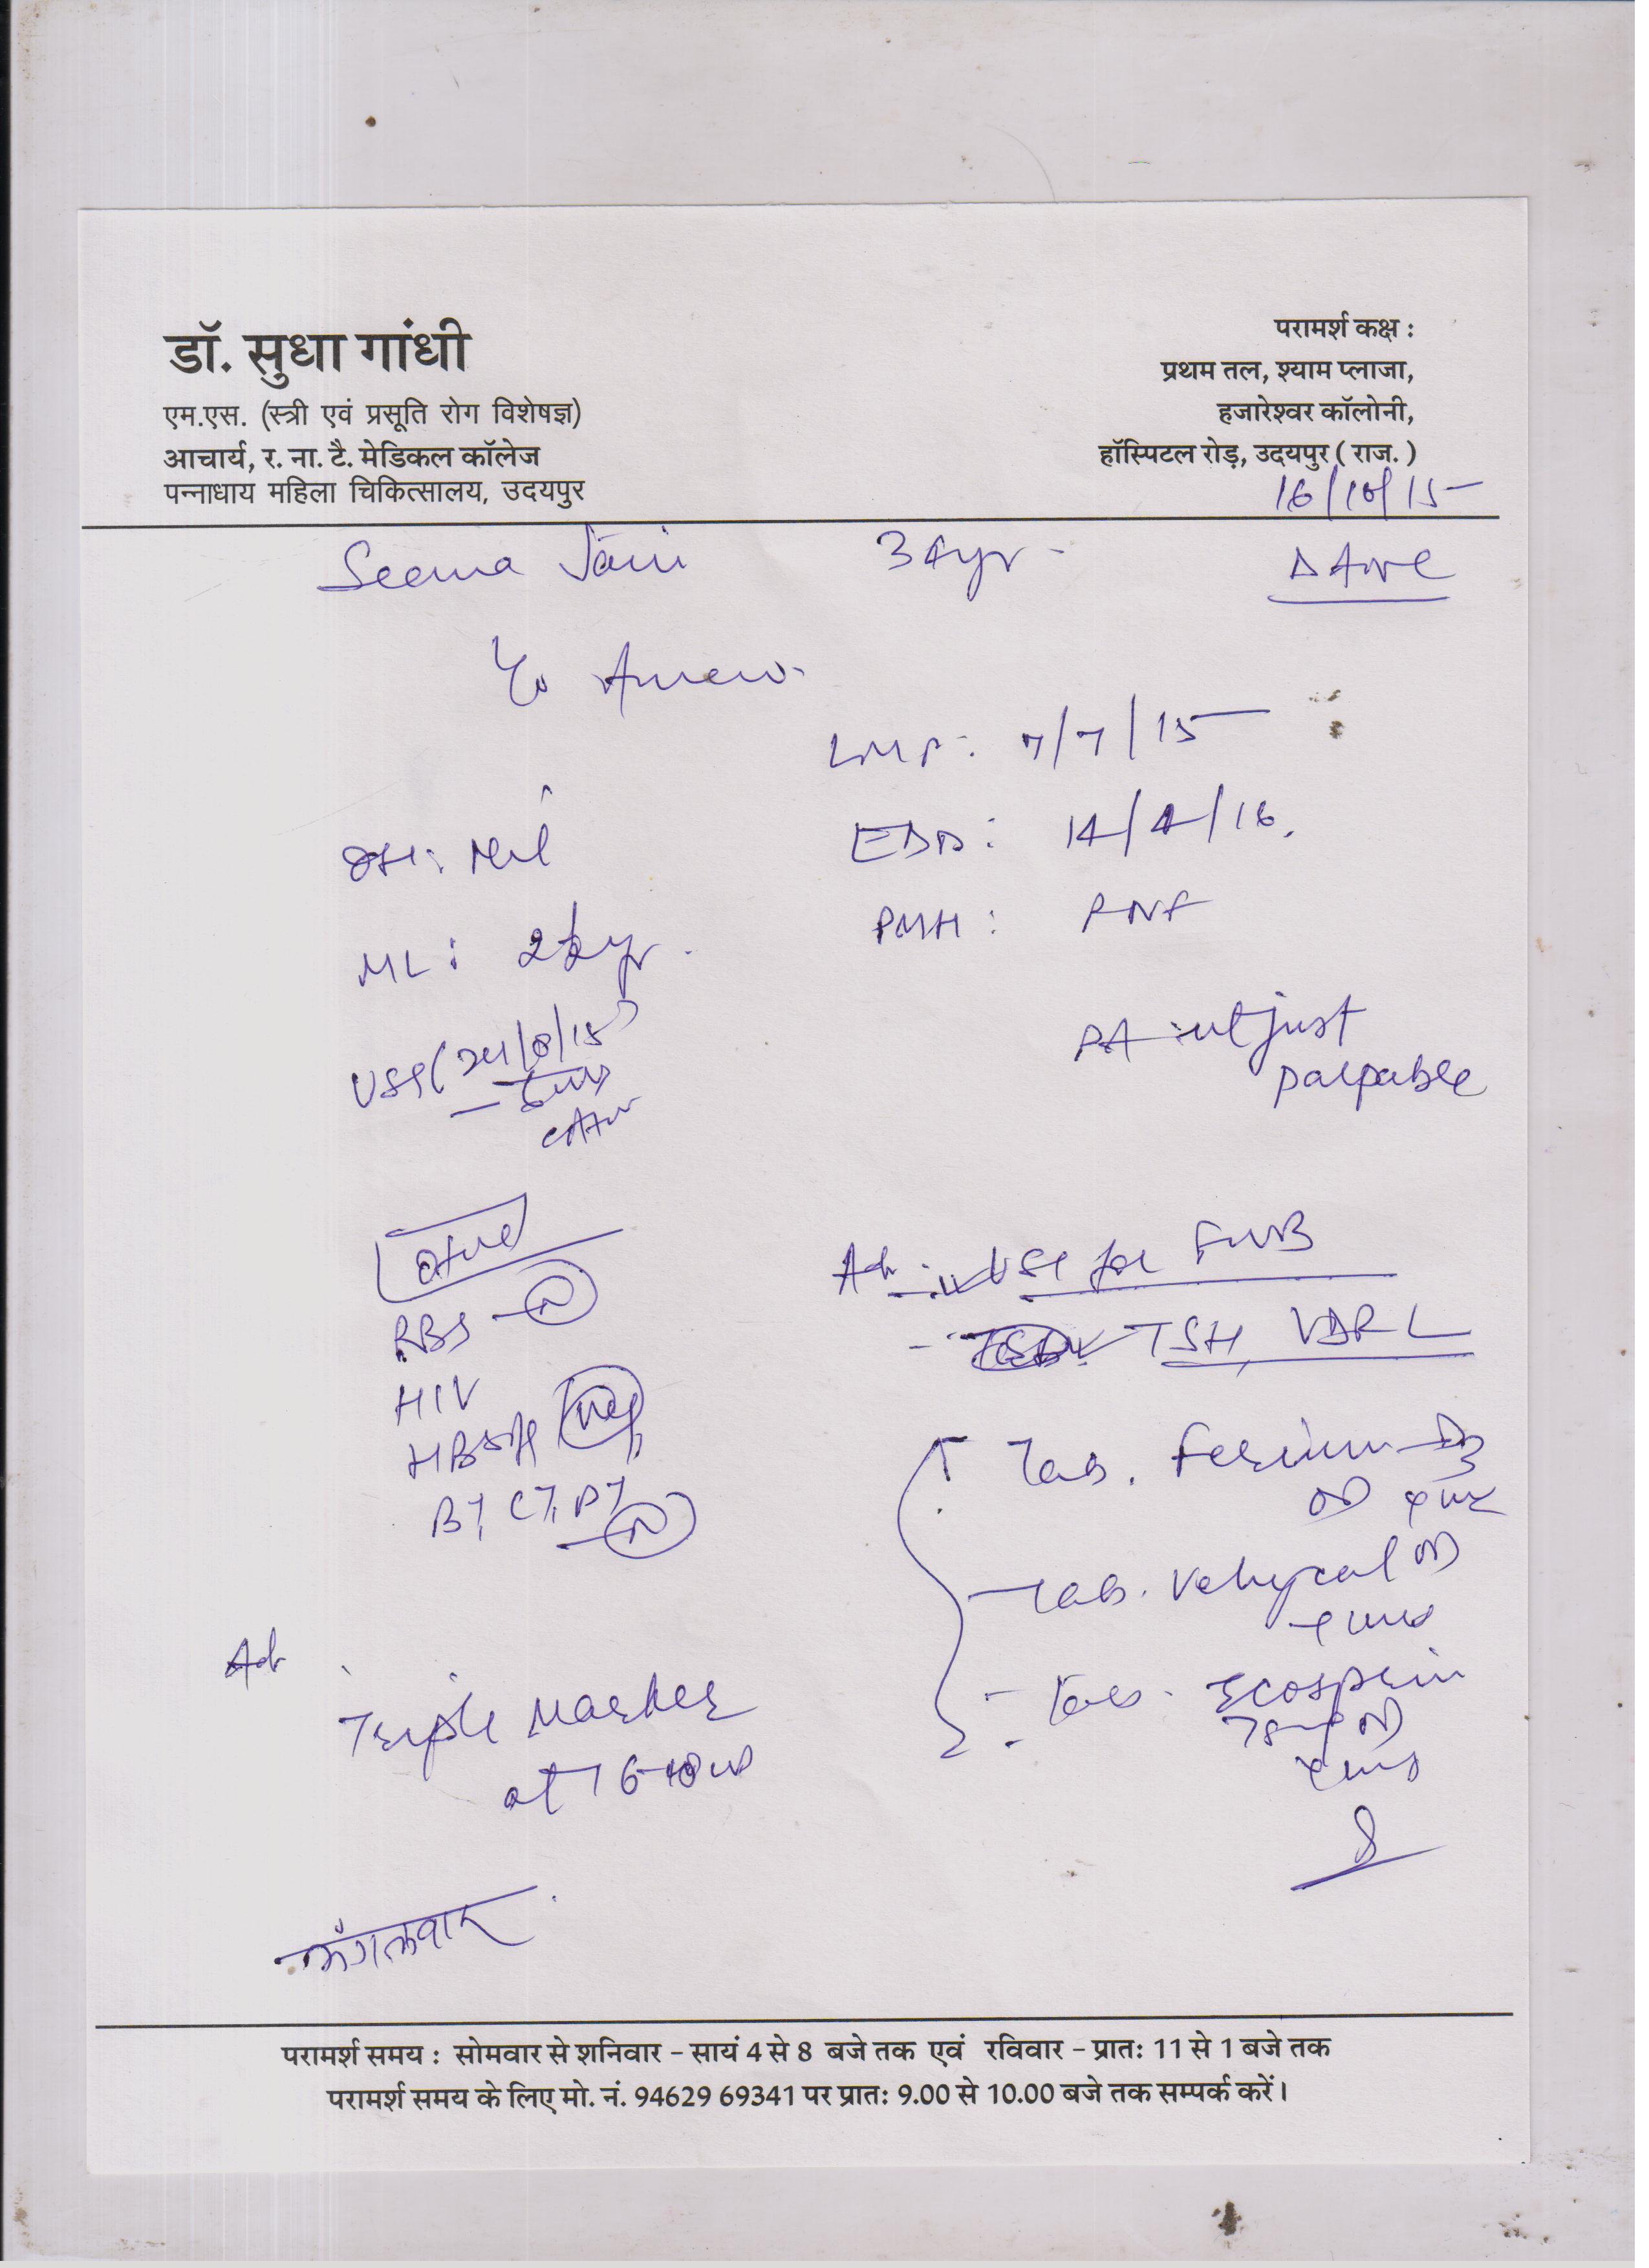 डॉ. सुधा गांधी
एम.एस. (स्त्री एवं प्रसूति रोग विशेषज्ञ)
आचार्य, र. ना. टै. मेडिकल कॉलेज
पन्नाधाय महिला चिकित्सालय, उदयपुर
परामर्श कक्ष :
प्रथम तल, श्याम प्लाजा,
हजारेश्वर कॉलोनी,
हॉस्पिटल रोड़, उदयपुर ( राज. )
16/10/15
Seema Jain 34yr
LMP: 7/7/15
OH: Nil
EDD: 14/4/16.
ML: 2½yr.
PMH:
USG (24/8/15)
PA ut just
palpable
Adv: USG for FWB
TSH, VDRL
RBS N
HIV
HBsAg
BT, CT, PT N
Tab.
OD
Tab. OD
Tab. Ecosprin
75mg OD
Adv
Triple Marker
at 16-18 w
मंगलवार
परामर्श समय : सोमवार से शनिवार - सायं 4 से 8 बजे तक एवं रविवार - प्रातः 11 से 1 बजे तक
परामर्श समय के लिए मो. नं. 94629 69341 पर प्रातः 9.00 से 10.00 बजे तक सम्पर्क करें।